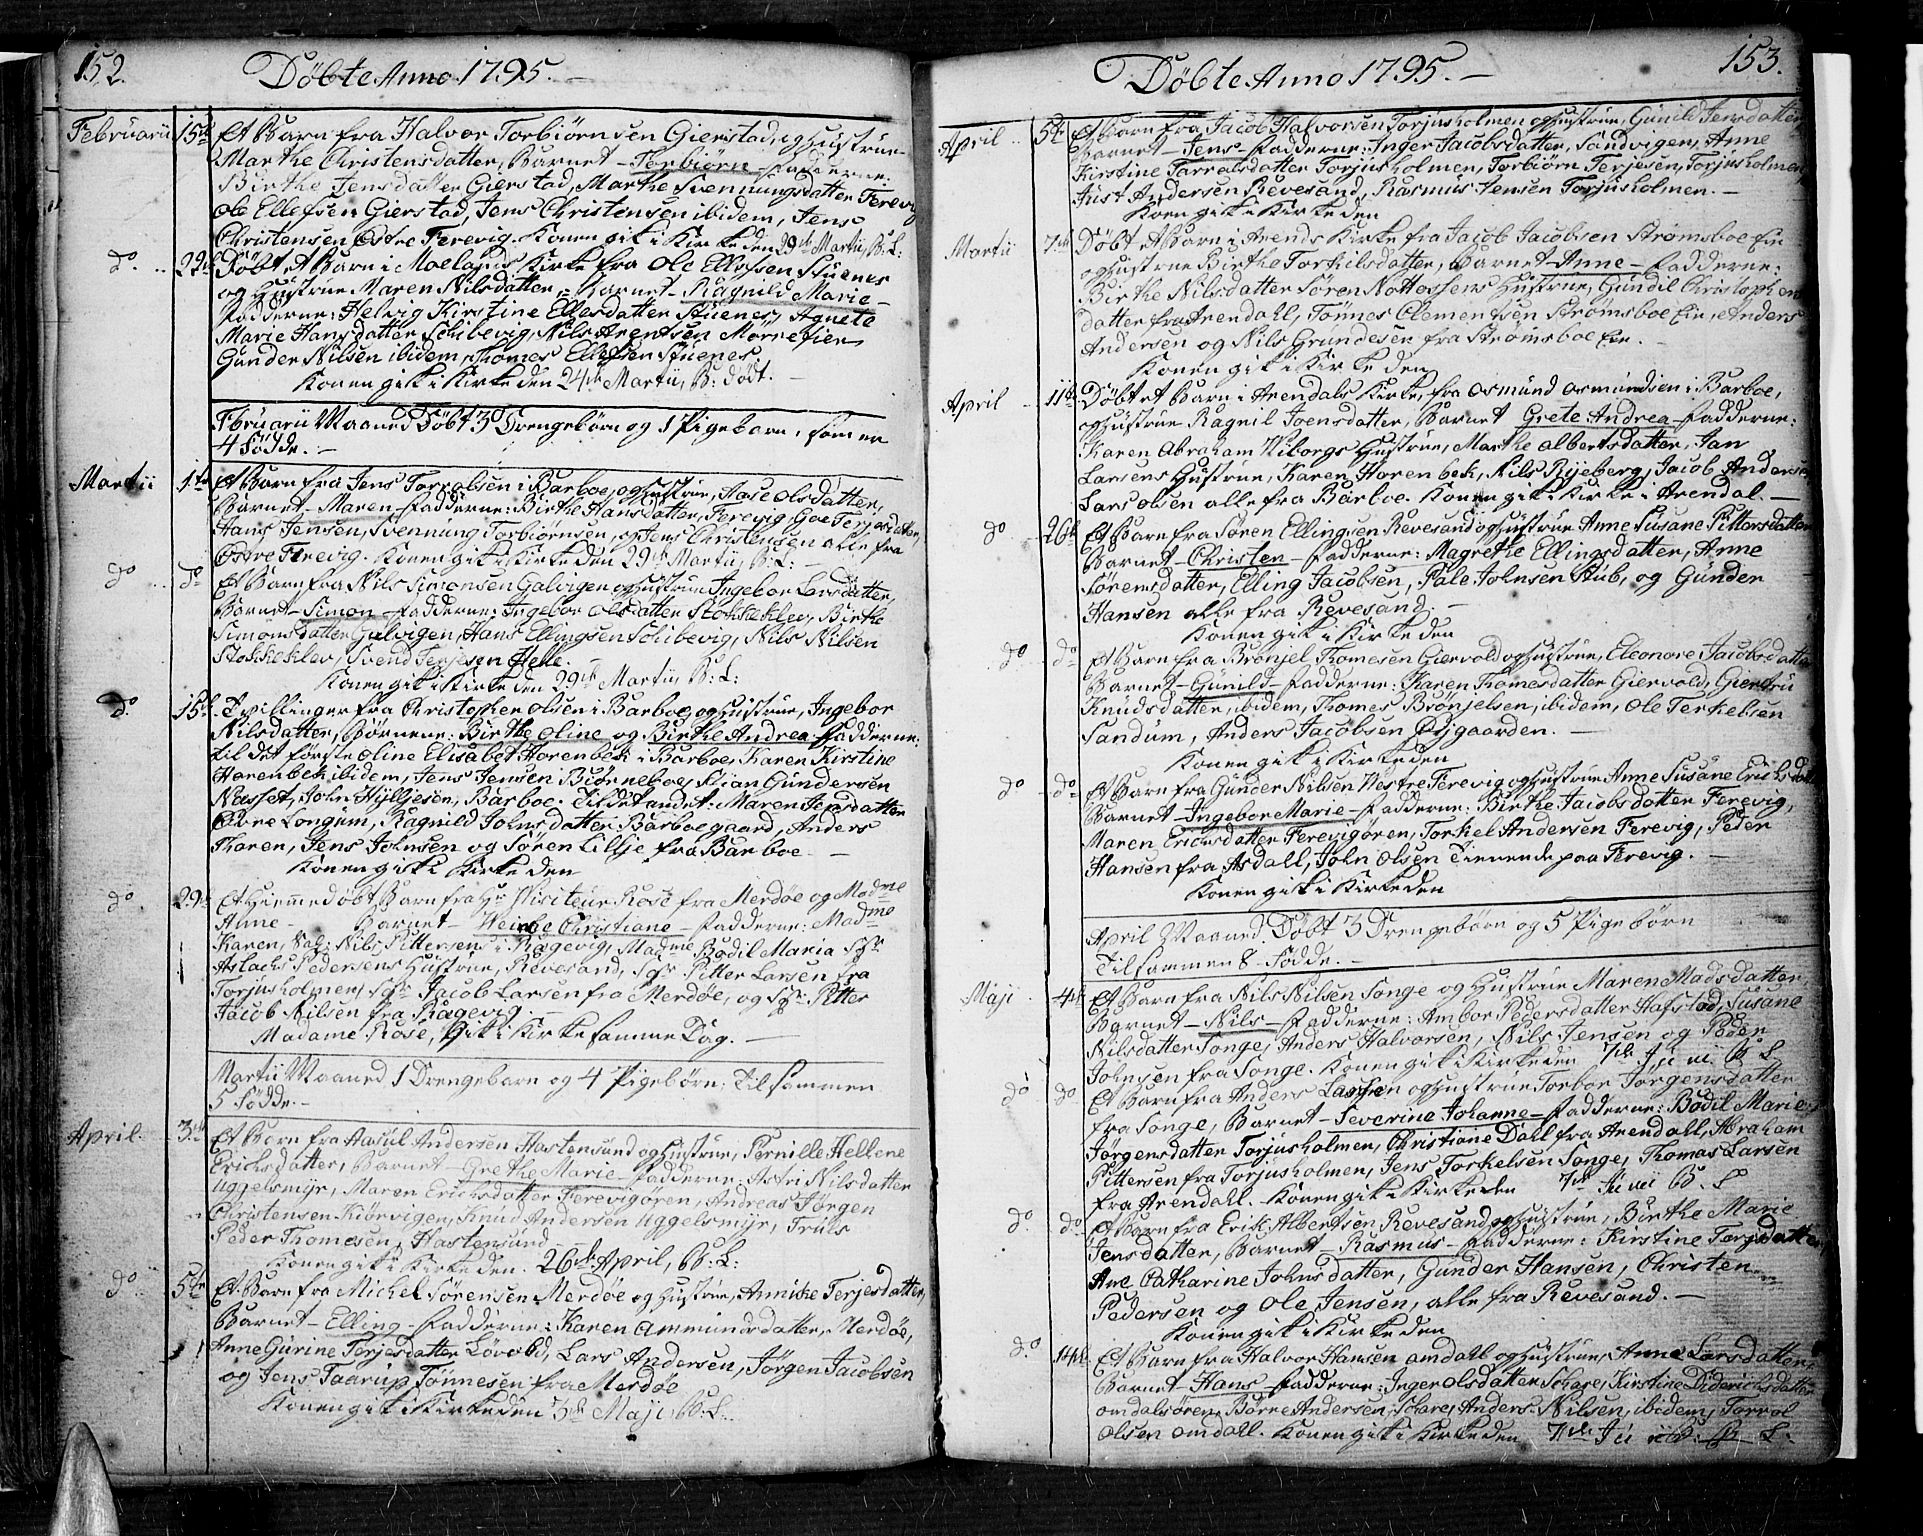 152.
Döbte Anno 1795. —
Februarii 15de Et Barn fra Halvor Torbiörnsen Gierstad, og Hustrue
Marthe Christensdatter, Barnet — Torbiörn — Fadderne:
Birthe Jensdatter Gierstad, Marthe Svenningsdatter Ferevig
Ole Ellefsen Gierstad, Jens Christensen ibidem, Jens
Christensen Östre Ferevig. Konen gik i Kirke den 29de Martii, B: L:
do .. 22de Döbt et Barn i Moelands Kirke fra Ole Ellefsen Stuenes
og Hustrue Maren Nilsdatter, Barnet — Ragnild Marie —
Fadderne: Helvig Kirstine Ellefsdatter Stuenes, Agnete
Marie Hansdatter Schibevig, Nils Arentsen Mörrefier
Gunder Nilsen ibidem, Thomes Ellefsen Stuenes.
Konen gik i Kirke den 24de Martii, B: dödt. —
Februarii Maaned Döbt 3 Drengebörn og 1 Pigebarn, som er
4 Födde. —
Martii 1te Et Barn fra Jens Torralsen i Barboe, og Hustrue, Aase Olsdatter,
Barnet — Maren — Fadderne: Birthe Hansdatter, Ferevig Goe Terjesdatter,
Hans Jensen, Svenning Torbiörnsen, og Jens Christensen alle fra
Östre Ferevig. Konen gik i Kirke den 29de Martii, B: L: —
do .. do Et Barn fra Nils Simonsen Galvigen og Hustrue Ingebor Larsdatter,
Barnet — Simon — Fadderne: Ingebor Olsdatter Stokkeklev, Birthe
Simonsdatter Galvigen, Hans Ellingsen Schibevig, Nils Nilsen
Stokkeklev, Svend Terjesen Helle.
Konen gik i Kirke den 29de Martii, B: L:
do. 15de Tvillinger fra Christopher Olsen i Barboe, og Hustrue, Ingebor
Nilsdatter, Börnene: Birthe Oline og Birthe Andrea — Fadderne:
til det förste Oline Elisabet Horenbek i Barboe, Karen Kirstine
Horenbek ibidem, Jens Jensen Biörneboe, Stian Gundersen
Næsset, John Hylljesen, Barboe. Til det andet: Maren Jensdatter
Övre Longum, Ragnild Johnsdatter Barboegaard, Anders
Tharen, Jens Johnsen og Sören Lillje fra Barboe. —
Konen gik i Kirke den
do 29de Et Hiemmedöbt Barn fra Hr Visiteur Rose fra Merdöe og Madme
Anne — Barnet — Weinche Christiane — Fadderne: Madme
Karen, Sal: Nils Pittersens i Ragevig, Madme Bodil Maria Sgr
Aslachs Pedersens Hustrue, Revesand, Sgr Pitter Larsen fra
Torjusholmen, Sgr Jacob Larsen fra Merdöe, og Sgr Pitter
Jacob Nilsen fra Ragevig. —
Madame Rose, Gik i Kirke samme Dag. —
Martii Maaned 1 Drengebarn og 4 Pigebörn; Tilsammen
5 Födde. —
April. 3de Et Barn fra Aasul Andersen Hastensund og Hustrue, Pernille Hellene
Erichsdatter, Barnet — Grethe Marie — Fadderne: Astri Nilsdatter
Uggelsmyr, Maren Erichsdatter Ferevigören, Andreas Jörgen
Christensen Kiörvigen, Knud Andersen Uggelsmyr, Truls
Peder Thomesen, Hastensund —
Konen gik i Kirke den 26de April, B: L:
do 5te Et Barn fra Michel Sörensen Merdöe og Hustrue, Annike Terjesdatter,
Barnet — Elling — Fadderne: Karen Ammundsdatter, Merdöe,
Anne Gurine Terjesdatter Lövold, Lars Andersen, Jörgen Jacobsen
og Jens Taarup Tönnesen fra Merdöe
Konen gik i Kirke den 3de Maji, B: L:
153.
Döbte Anno 1795. —
April .. 5te Et Barn fra Jacob Halvorsen Torjusholmen og Hustrue, Gunild Jensdatter
Barnet — Jens — Fadderne: Inger Jacobsdatter, Sandvigen, Anne
Kirstine Tarralsdatter Torjusholmen, Torbiörn Terjesen, Torjusholmen,
Just Andersen Revesand, Rasmus Jensen Torjusholmen. —
Konen gik i Kirke den
Martii 7de Döbt et Barn i Arends Kirke fra Jacob Jacobsen Strömsboe Eie
og Hustrue Birthe Torkilsdatter, Barnet — Anne — Fadderne:
Birthe Nilsdatter Sören Nottossens Hustrue, Gundil Christophers
datter fra Arendahl, Tönnes Clementsen Strömsboe Eie, Anders
Andersen og Nils Grundesen fra Strömsboe Eie. —
Konen gik i Kirke den
April — 11te Döbt et Barn i Arendals Kirke, fra Osmund Osmundsen i Barboe,
og Hustrue Ragnil Joensdatter, Barnet Grete Andrea — Fadderne:
Karen Abraham Wiborgs Hustrue, Marthe Albertsdatter, Jan
Larsens Hustrue, Karen Horenbek, Nils Ryeberg, Jacob Andersen,
Lars Olsen alle fra Barboe. Konen gik i Kirke i Arendal. —
do 26de Et Barn fra Sören Ellingsen Revesand og Hustrue Anne Susane Pittersdatter
Barnet — Christen — Fadderne: Magrethe Ellingsdatter, Anne
Sörensdatter, Elling Jacobsen, Pale Johnsen Stub, og Gunder
Hansen alle fra Revesand. —
Konen gik i Kirke den
do do Et Barn fra Brönjel Thomesen Giervold og Hustrue, Eleonore Jacobsdatter
Barnet — Gunild — Fadderne: Karen Thomesdatter Giervold, Giertru
Knudsdatter, ibidem, Thomes Brönjelsen, ibidem, Ole Terkelsen
Sandum, Anders Jacobsen Öjgaarden. —
Konen gik i Kirke den
do do Et Barn fra Gunder Nilsen Westre Ferevig og Hustrue Anne Susane Erichsdatter
Barnet — Ingebor Marie — Fadderne: Birthe Jacobsdatter Ferevig,
Maren Ericksdatter Ferevigören, Torkel Andersen Ferevig, Peder
Hansen fra Asdall, John Olsen Tienende paa Ferevig. —
Konen gik i Kirke den
April Maaned Döbt 3 Drengebörn og 5 Pigebörn
Tilsammen 8 Födde. —
Maji 4de Et Barn fra Nils Nilsen Songe og Hustrue Maren Madsdatter,
Barnet — Nils — Fadderne: Ambor Pedersdatter Hafstad, Susane
Nilsdatter Songe, Anders Halvorsen, Nils Jensen og Peder
Johnsen fra Songe. Konen gik i Kirke den 7de Juni B L
do do Et Barn fra Anders Larsen og Hustrue Torbor Jörgensdatter
fra Songe, Barnet — Severine Johanne — Fadderne: Bodil Marie
Jörgensdatter Torjusholmen, Christiane Dahl fra Arendall, Abraham
Pittersen fra Torjusholmen, Jens Torkelsen Songe, Thomas Larsen
fra Arendahl. — Konen gik i Kirke den 7de Juni B. L
do. do Et Barn fra Erik Albertsen Revesand og Hustrue, Birthe Marie
Jensdatter, Barnet — Rasmus — Fadderne: Kirstine Terjsdatter,
Ane Catharine Johnsdatter, Gunder Hansen, Christen
Pedersen og Ole Jensen, alle fra Revesand. —
Konen gik i Kirke den
do. 14de Et Barn fra Halvor Hansen Omdahl og Hustrue, Anne Larsdatter,
Barnet — Hans — Fadderne: Inger Olsdatter Schare, Kirstine Diderichsdatter
Omdalsören, Börre Andersen, Schare, Anders Nilsen, ibidem, Torral
Olsen Omdahl. Konen gik i Kirke den 7de Juni B. L.